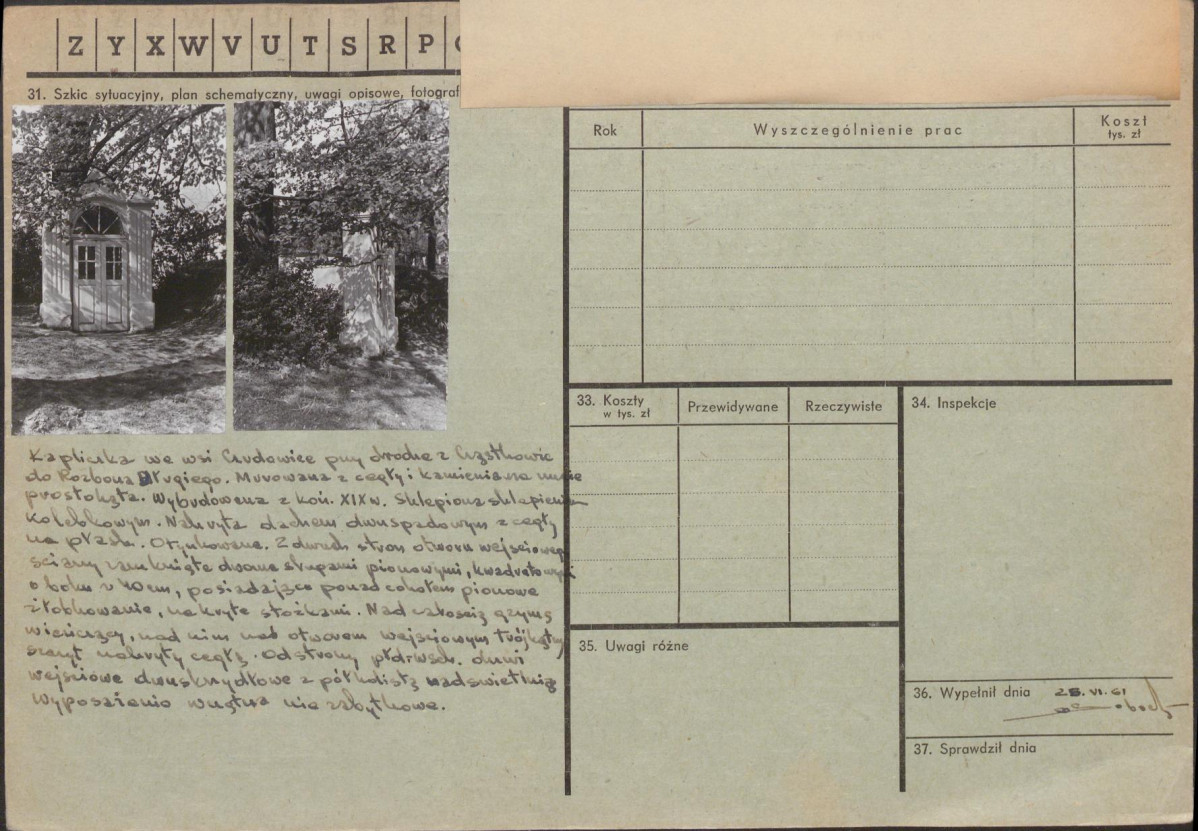 Z Y X W V U T S R P
31. Szkic sytuacyjny, plan schematyczny, uwagi opisowe, fotograf
Kapliczka we wsi Czudowice przy drodze z Cząstkowic
do Rozborza Długiego. Murowana z cegły i kamienia na
prostokąta. Wybudowana z koń. XIX w. Sklepiona sklepieniem
kolebkowym. Nakryta dachem dwuspadowym z cegły
na płask. Otynkowana. Z dwuch stron otworu wejściowego
ściany zamknięte dwoma słupami pionowymi, kwadratowymi
o boku 40 cm, posiadające ponad cokołem pionowe
żłobkowanie, nakryte stożkami. Nad całością gzyms
wieńczący, nad nim nad otworem wejściowym trójkątny
szczyt nakryty cegłą. Od strony płd. wsch. drzwi
wejściowe dwuskrzydłowe z półkolistą nadświetlnią
Wyposażenie wnętrza nie zabytkowe.
Rok
Wyszczególnienie prac
Koszt
tys. zł
33. Koszty
w tys. zł
Przewidywane
Rzeczywiste
34. Inspekcje
35. Uwagi różne
36. Wypełnił dnia 25.VI.61
37. Sprawdził dnia